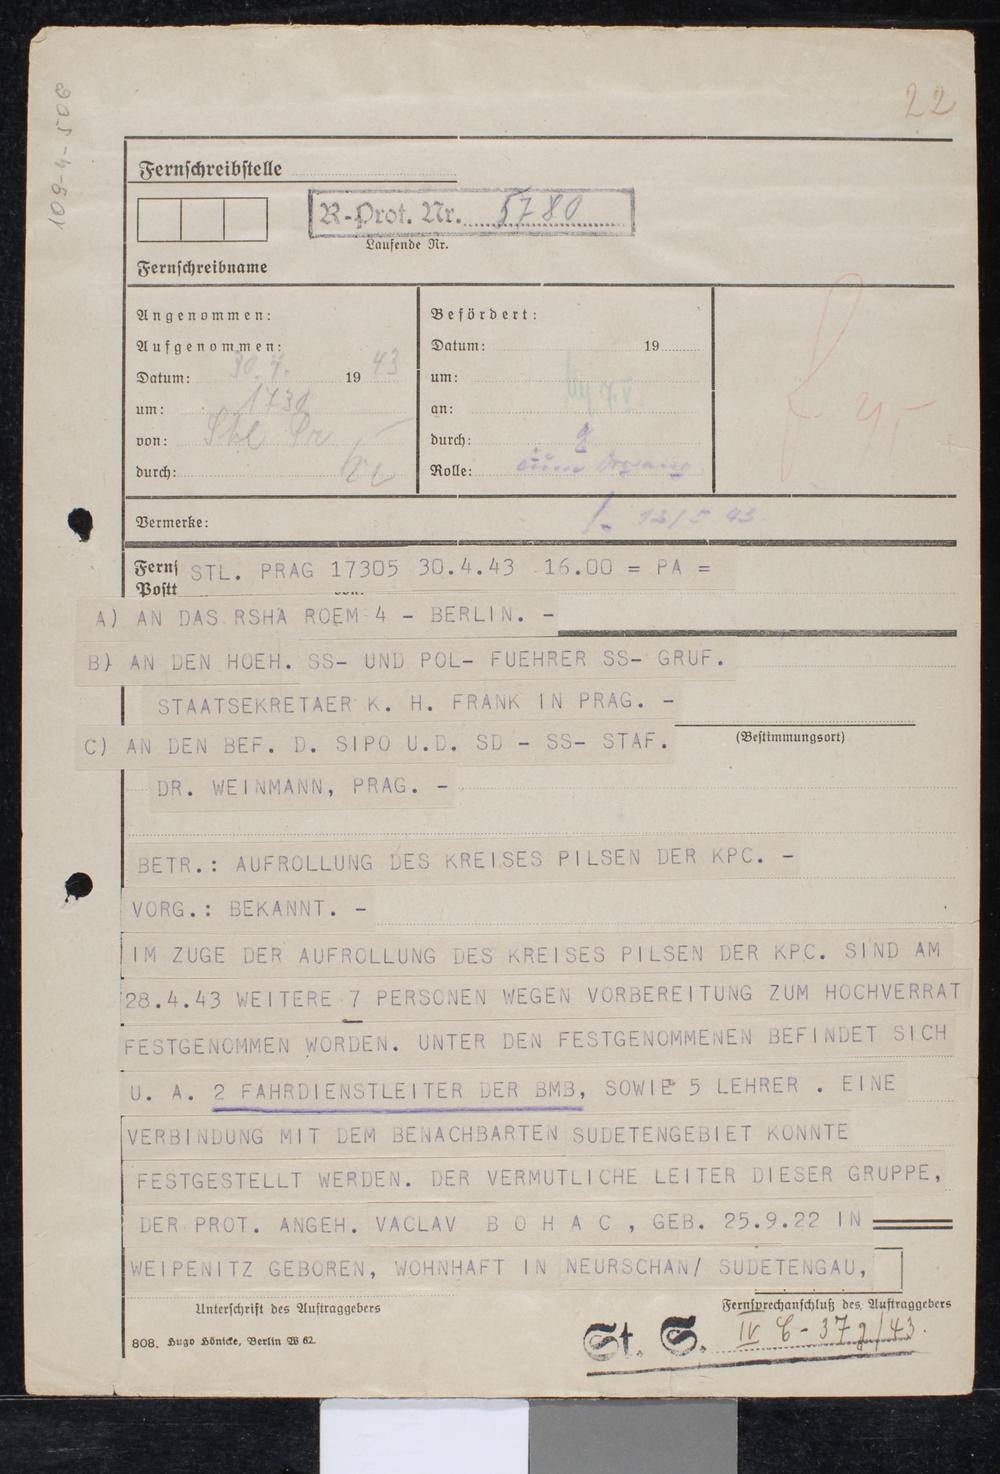 109-4-506
22
Fernschreibstelle
R-Prot. Nr. 5780
Laufende Nr.
Fernschreibname
Angenommen:
Aufgenommen:
Datum: 30.4. 19 43
um: 1730
von: Stl Pr
durch:
Befördert:
Datum: 19
um:
an:
durch:
Rolle:
Vermerke: 13/5 43
Ferns STL. PRAG 17305 30.4.43 16.00 = PA =
Postt
A) AN DAS RSHA ROEM 4 - BERLIN. -
B) AN DEN HOEH. SS- UND POL- FUEHRER SS- GRUF.
STAATSEKRETAER K. H. FRANK IN PRAG. -
(Bestimmungsort)
C) AN DEN BEF. D. SIPO U.D. SD - SS- STAF.
DR. WEINMANN, PRAG. -
BETR.: AUFROLLUNG DES KREISES PILSEN DER KPC. -
VORG.: BEKANNT. -
IM ZUGE DER AUFROLLUNG DES KREISES PILSEN DER KPC. SIND AM
28.4.43 WEITERE 7 PERSONEN WEGEN VORBEREITUNG ZUM HOCHVERRAT
FESTGENOMMEN WORDEN. UNTER DEN FESTGENOMMENEN BEFINDET SICH
U. A. 2 FAHRDIENSTLEITER DER BMB, SOWIE 5 LEHRER . EINE
VERBINDUNG MIT DEM BENACHBARTEN SUDETENGEBIET KONNTE
FESTGESTELLT WERDEN. DER VERMUTLICHE LEITER DIESER GRUPPE,
DER PROT. ANGEH. VACLAV B O H A C , GEB. 25.9.22 IN
WEIPENITZ GEBOREN, WOHNHAFT IN NEURSCHAN/ SUDETENGAU,
Unterschrift des Auftraggebers
Fernsprechanschluß des Auftraggebers
808. Hugo Hönicke, Berlin W 62.
St. S. IV C - 37g/43.